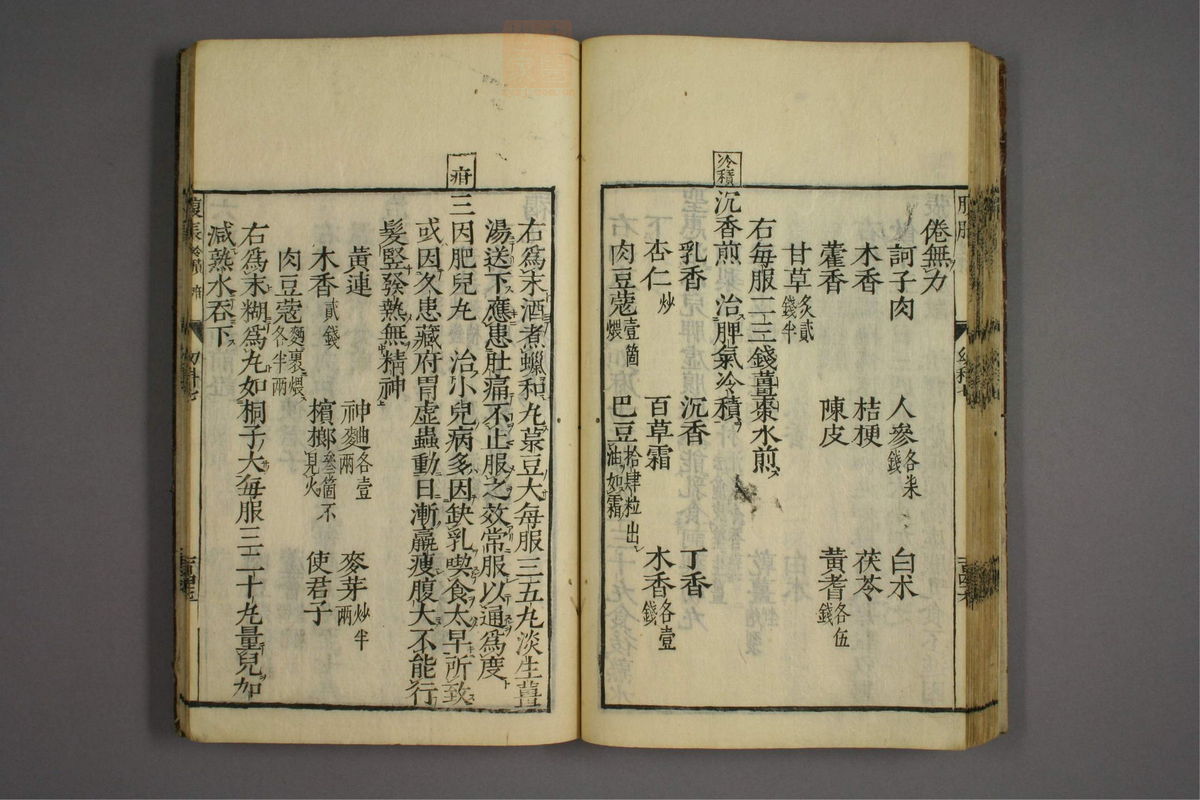 倦無力
訶子肉 人參各朱錢 白朮
木香 桔梗 茯苓
藿香 陳皮 黃耆各伍錢
甘草炙貳錢半
右每服二三錢薑棗水煎
冷積
沉香煎 治脾氣冷積
乳香 沉香 丁香
杏仁炒 百草霜 木香各壹錢
肉豆蔻壹箇煨 巴豆拾肆粒出油如霜
右爲末酒煮蠟和丸菉豆大每服三五丸淡生薑
湯送下應患肚痛不止服之效常服以通爲度
疳
三因肥兒丸 治小兒病多因缺乳喫食太早所致
或因久患藏府胃虛蟲動日漸羸瘦腹大不能行
髮竪發熱無精神
黃連 神麴各壹兩 麥芽炒半兩
木香貳錢 檳榔叄箇不見火 使君子
肉豆蔻麵裹煨各半兩
右爲末糊爲丸如桐子大每服三二十丸量兒加
減蒸水吞下